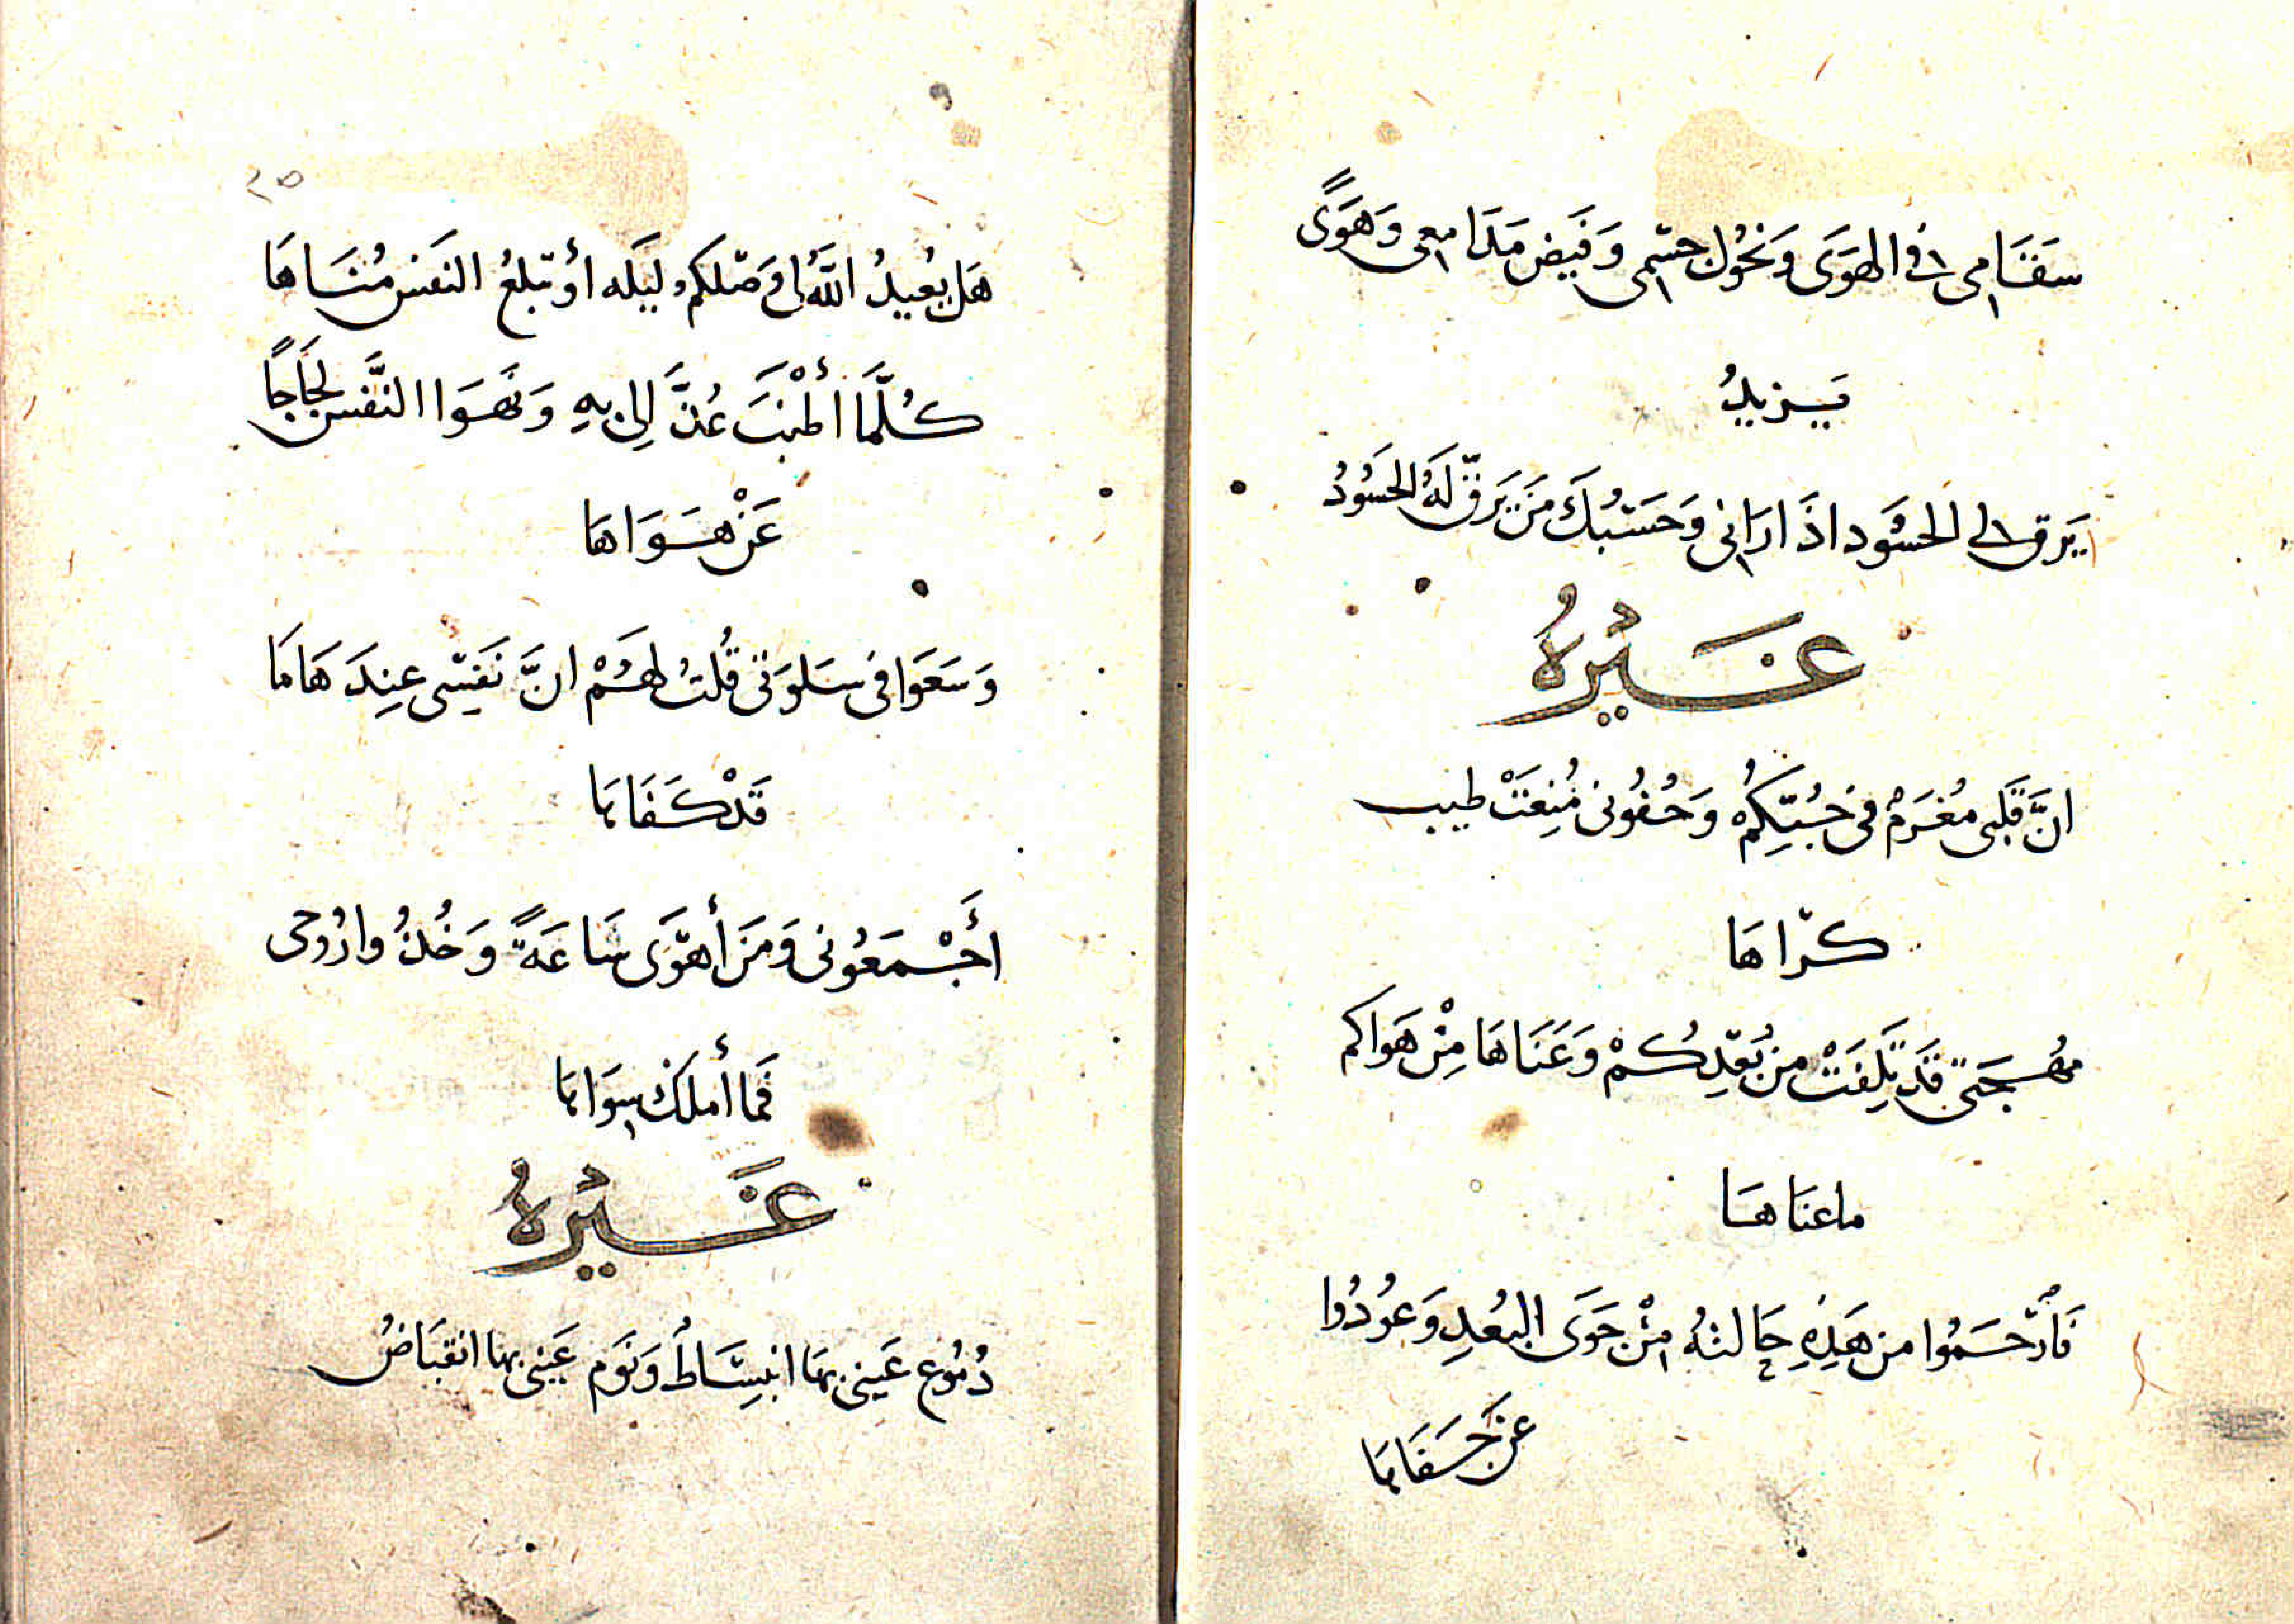 سَقَامِى فِى الهَوَى وَنُحُول جسْمِى وَفَيض مَدَامعِى وَهَوًى
يَزيدُ
يَرق لى الحسُود اذَا رَانى وَحَسْبُكَ مَن يَرقّ لَهُ الحَسُودُ
غَيْرُهُ
انَّ قَلْبى مُغرَمٌ فى حُبّكِمُ وَجُفُونى مُنِعَتْ طيب
كرّاهَا
مُهجَتى قَد تَلِفَتْ من بُعْدِكُمْ وَعَنَاهَا مِنْ هَوَاكم
ماعنَاهَا
فَارْحَمُوا من هَذِهِ حَالتهُ مِنْ جَوَى البُعدِ وَعُودُوا
عَن جَفَاهَا
٢٥
هَل يُعيدُ اللَّهُ لى وَصْلكم ليَلَه أوْ تبلغُ النفَس مُنَاهَا
كُلَّمَا أطْنَبَ عُذَّالِى بِهِ وَنَهَوَا النَّفس لجَاجًا
عَنْ هَوَاهَا
وَسَعَوا فى سَلوَتى قُلتُ لهَمْ انَّ نَفسْى عِندَهَا مَا
قَدْ كَفَاهَا
أَجْمَعُونى وَمَن أَهْوَى سَاعَةً وَخُذُوا رُوحى
فَما أملكُ سِوَاهَا
غَيْرُهُ
دُمُوع عَينى بهَا انبسَاطُ وَنَوَم عَينى بها انقبَاضُ